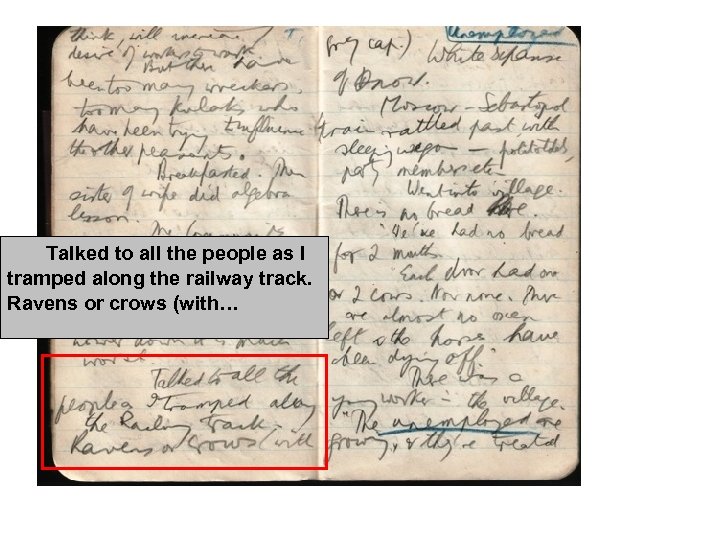 think, will increase
desire of workers to work.
But there have
been too many wreckers,
too many kulaks who
have been trying to influence
the other peasants.
Breakfasted. Then
sister of wife did algebra
lesson.
The Communists
Talked to all the people as I
tramped along the railway track.
Ravens or crows (with…
worst.
Talked to all the
people as I tramped along
the Railway track.
Ravens or crows (with
Unemployed
grey cap.) White expanse
of snow.
Moscow - Sebastopol
train rattled past with
sleeping wagon —
party members etc.
Went into village.
There is no bread here.
"We've had no bread
for 2 months.
"Each door had one
or 2 cows. Now none. There
are almost no oxen
left & the horses have
been dying off."
There was a
young worker in the village.
"The unemployed are
growing, & they're treated